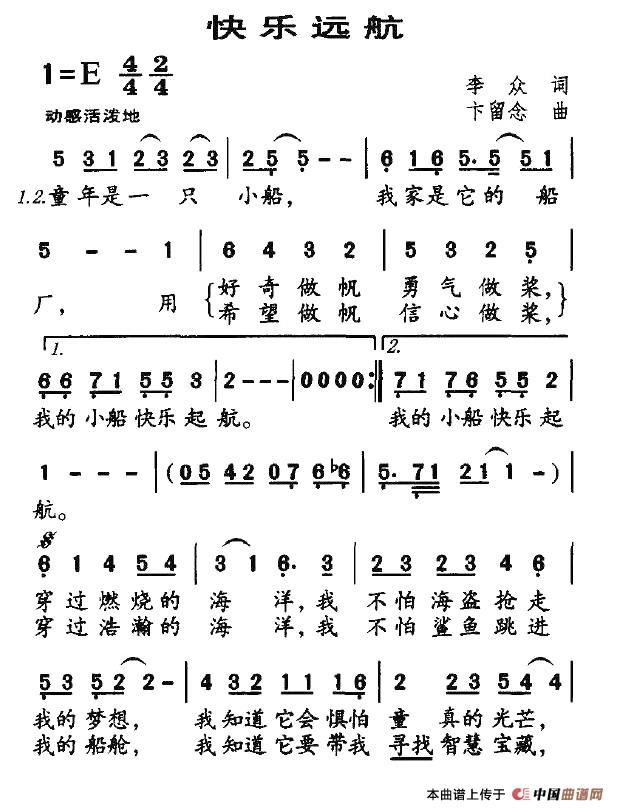 快乐远航
1=E 4/4 2/4
李众 词
动感活泼地
卞留念 曲
5 31 23 23 | 25 5 - - | 6 16 5.5 51 |
1.2.童年是一只 小船, 我家是它的船
5 - - 1 | 6 4 3 2 | 5 3 2 5 |
厂, 用 {好奇做帆 勇气做桨,}
{希望做帆 信心做桨,}
1. 2.
66 71 55 3 | 2 - - - | 0000 :| 71 76 55 2 |
我的小船快乐起航。 我的小船快乐起
1 - - - | (05 42 07 6♭6 | 5. 71 21 1 -) |
航。
6 1 4 54 | 3 1 6. 3 | 23 23 4 6 |
穿过燃烧的海洋,我不怕海盗抢走
穿过浩瀚的海洋,我不怕鲨鱼跳进
53 52 2 - | 4 32 11 16 | 2 23 54 4 |
我的梦想, 我知道它会惧怕童真的光芒,
我的船舱, 我知道它要带我寻找智慧宝藏,
本曲谱上传于 中国曲谱网